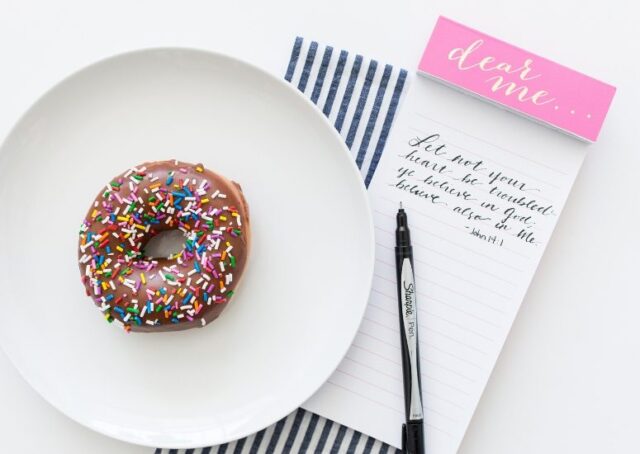 dear
me...
Let not your
heart be troubled
ye believe in God.
believe also in Me.
-John 14:1
Sharpie. Pen.